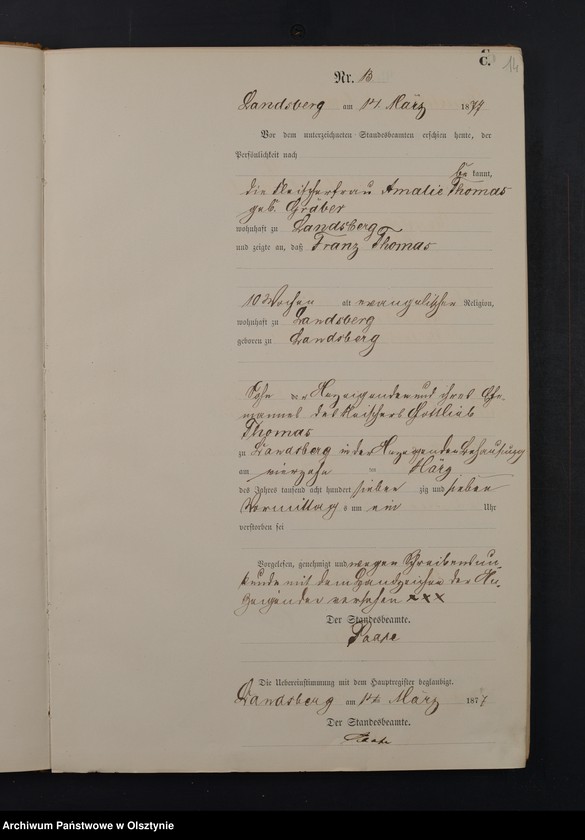 C.
14
Nr. 13
Landsberg am 14 März 1877
Vor dem unterzeichneten Standesbeamten erschien heute, der
Persönlichkeit nach
be kannt,
die Fleischerfrau Amalie Thomas
geb. Gräber
wohnhaft zu Landsberg
und zeigte an, daß Franz Thomas
10 Wochen alt evangelischer Religion,
wohnhaft zu Landsberg
geboren zu Landsberg
Sohn der Anzeigenden und ihres Ehe-
mannes des Fleischers Gottlieb
Thomas
zu Landsberg in der Anzeigenden Behausung
am vierzehn ten März
des Jahres tausend acht hundert sieben zig und sieben
Vormittags um ein Uhr
verstorben sei
Vorgelesen, genehmigt und wegen Schreibensun-
kunde mit dem Handzeichen der An-
zeigenden versehen XXX
Der Standesbeamte.
Paase
Die Uebereinstimmung mit dem Hauptregister beglaubigt.
Landsberg am 14 März 1877
Der Standesbeamte.
Paase
Archiwum Państwowe w Olsztynie